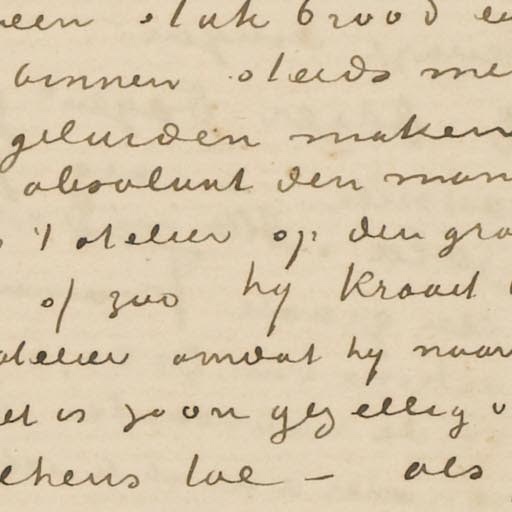 een stuk brood en
binnen steeds me
geluiden maken
absoluut den man
't atelier op den gro
of zoo hy kraait
atelier omdat hy naar
et is zoo'n gezellig
toe - als